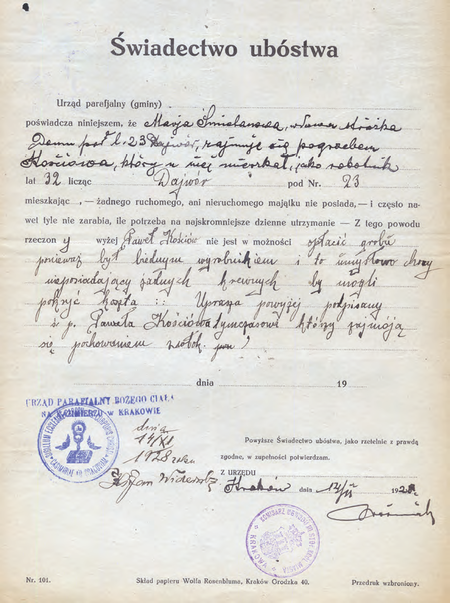 Świadectwo ubóstwa
Urząd parafjalny (gminy)
poświadcza niniejszem, że Marja Śmielanowa, wdowa stróżka
Domu pod l. 23 Dajwór, zajmuje się pogrzebem
Kościowa, który u niej mieszkał, jako robotnik
lat 32 licząc Dajwór pod Nr. 23
mieszkając , — żadnego ruchomego, ani nieruchomego majątku nie posiada, — i często na-
wet tyle nie zarabia, ile potrzeba na najskromniejsze dzienne utrzymanie — Z tego powodu
rzeczony wyżej Paweł Kościów nie jest w możności opłacić grobu
ponieważ był biednym wyrobnikiem i to umysłowo chory
nieposiadający żadnych krewnych by mogli
pokryć koszta :: Uprasza powyżej podpisany
ś p. Pawła Kościowa którzy zajmują
się pochowaniem zwłok
dnia 19
URZĄD PARAFIALNY BOŻEGO CIAŁA
NA KAZIMIERZU W KRAKOWIE
dnia
14/XI
1928 roku
X Jan
Powyższe Świadectwo ubóstwa, jako rzetelnie z prawdą
zgodne, w zupełności potwierdzam.
Z URZĘDU
Kraków dnia 1928
KRAKÓW
Nr. 101. Skład papieru Wolfa Rosenbluma, Kraków Grodzka 40. Przedruk wzbroniony.